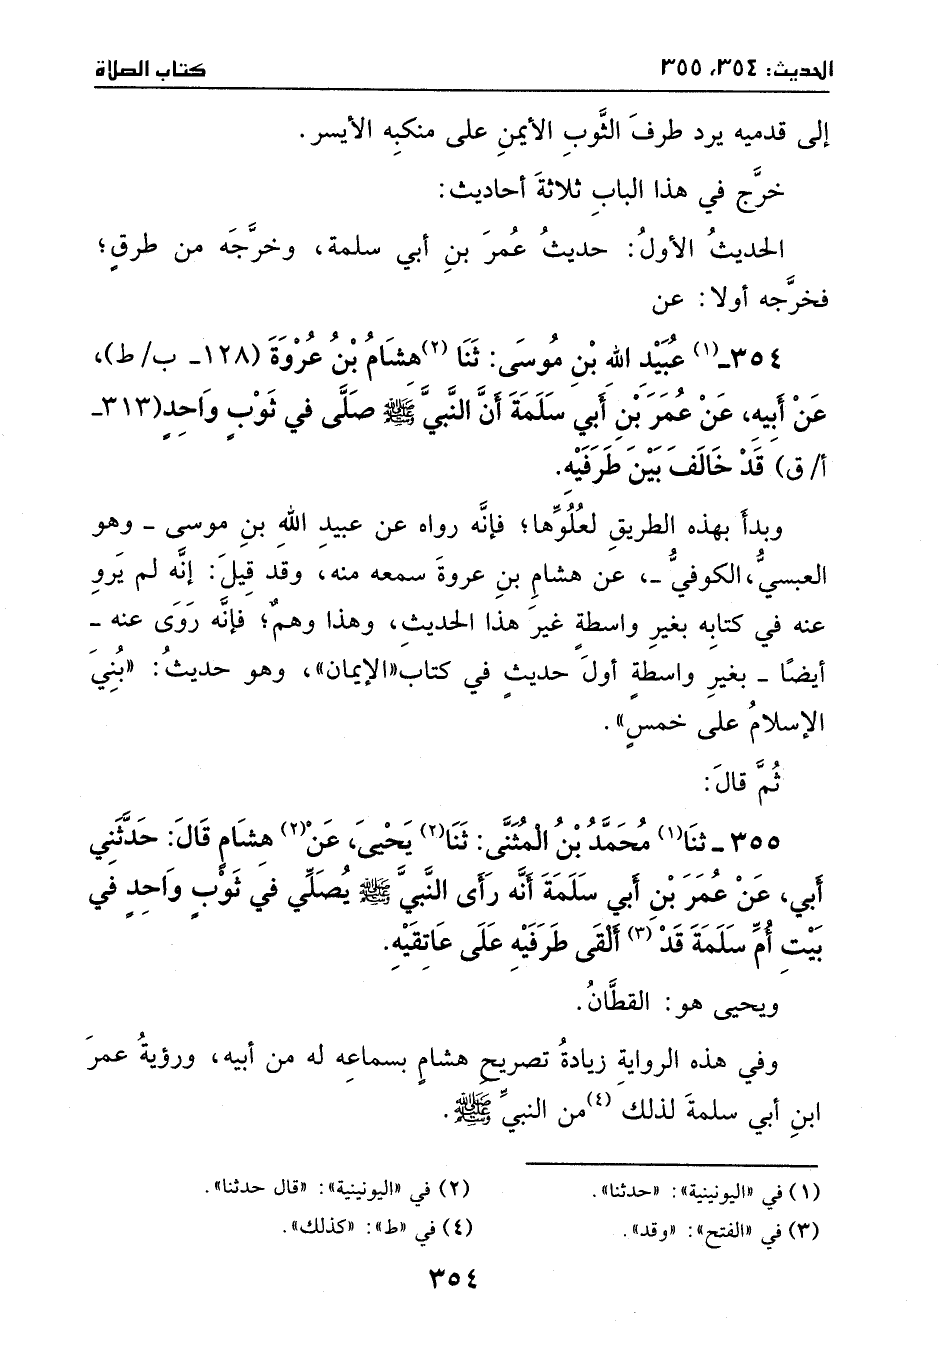 الحديث: ٣٥٤، ٣٥٥ كتاب الصلاة
إلى قدميه يرد طرفَ الثَّوبِ الأيمنِ على منكبِه الأيسر.
خرَّج في هذا البابِ ثلاثةَ أحاديث:
الحديثُ الأولُ: حديثُ عُمرَ بنِ أبي سلمة، وخرَّجَه من طرقٍ؛
فخرَّجه أولا: عن
٣٥٤ـ(١) عُبَيْدِ اللهِ بْنِ مُوسَى: ثَنَا (٢)هِشَامُ بْنُ عُرْوَةَ (١٢٨ـ ب/ط)،
عَنْ أَبِيهِ، عَنْ عُمَرَ بْنِ أَبِي سَلَمَةَ أَنَّ النَّبِيَّ ﷺ صَلَّى فِي ثَوْبٍ وَاحِدٍ(٣١٣ـ
أ/ق) قَدْ خَالَفَ بَيْنَ طَرَفَيْهِ.
وبدأَ بهذه الطريقِ لعُلُوِّها؛ فإنَّه رواه عن عبيدِ اللهِ بنِ موسى ـ وهو
العبسيُّ،الكوفيُّ ـ، عن هشامِ بنِ عروةَ سمعه منه، وقد قِيلَ: إنَّه لم يَروِ
عنه في كتابِه بغيرِ واسطةٍ غيرَ هذا الحديثِ، وهذا وهمٌ؛ فإنَّه رَوَى عنه ـ
أيضًا ـ بغيرِ واسطةٍ أولَ حديثٍ في كتاب«الإيمان»، وهو حديثُ: «بُنِيَ
الإسلامُ على خمسٍ».
ثُمَّ قالَ:
٣٥٥ ـ ثنَا(١) مُحَمَّدُ بْنُ الْمُثَنَّى: ثَنَا(٢) يَحْيَى، عَنْ(٢) هِشَامٍ قَالَ: حَدَّثَنِي
أَبِي، عَنْ عُمَرَ بْنِ أَبِي سَلَمَةَ أَنَّه رَأَى النَّبِيَّ ﷺ يُصَلِّي فِي ثَوْبٍ وَاحِدٍ فِي
بَيْتِ أُمِّ سَلَمَةَ قَدْ (٣) أَلْقَى طَرَفَيْهِ عَلَى عَاتِقَيْهِ.
ويحيى هو: القطَّانُ.
وفي هذه الروايةِ زيادةُ تصريحِ هشامٍ بسماعِه له من أبيه، ورؤيةُ عمرَ
ابنِ أبي سلمةَ لذلك (٤)من النبيِّ ﷺ.
(١) في «اليونينية»: «حدثنا». (٢) في «اليونينية»: «قال حدثنا».
(٣) في «الفتح»: «وقد». (٤) في «ط»: «كذلك».
٣٥٤